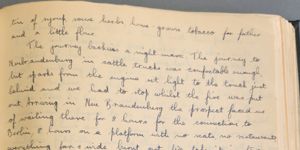 tin of syrup some herbs home grown tobacco for father
and a little flour
The journey back was a night mare. The journey to
Neubrandenburg in cattle trucks was comfortable enough
but sparks from the engine set light to the truck just
behind and we had to stop whilst the fire was put
out. Arriving in Neu Brandenburg the prospect faced us
of waiting there for 8 hours for the connection to
Berlin, 8 hours on a platform with no seats no restaurant